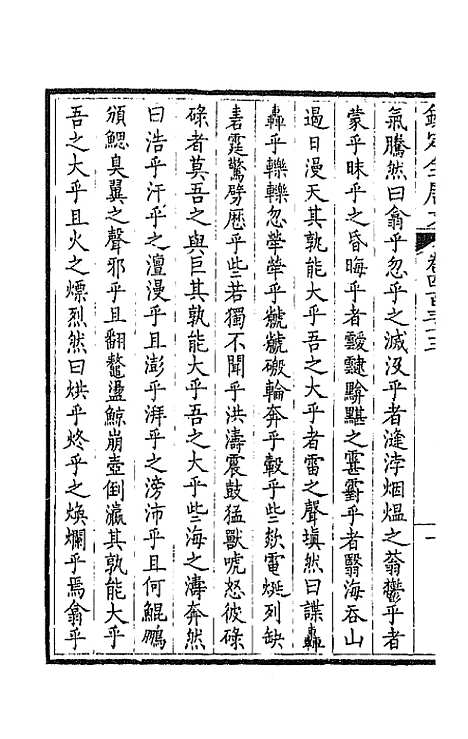 欽定全唐文
卷四百三十三
一
氣騰然曰翕乎忽乎之滅沒乎者漨浡烟熅之蓊鬱乎者
蒙乎昧乎之昏晦乎者靉靆黭黮之霮䨴乎者翳海吞山
過日漫天其孰能大乎吾之大乎者雷之聲塡然曰諜轟
轟乎轢轢忽犖犖乎虩虩磤輪奔乎轂乎些欻電烻列缺
砉霆驚劈歷乎些若獨不聞乎洪濤震鼓猛獸唬怒彼磤
碌者莫吾之與巨其孰能大乎吾之大乎些海之濤奔然
曰浩乎汗乎之澶漫乎且澎乎湃乎之滂沛乎且何鯤鵬
頒鰓臭翼之聲邪乎且翻鼇盪鯨崩壺倒瀛其孰能大乎
吾之大乎且火之熛烈然曰烘乎炵乎之煥爛乎焉翕乎